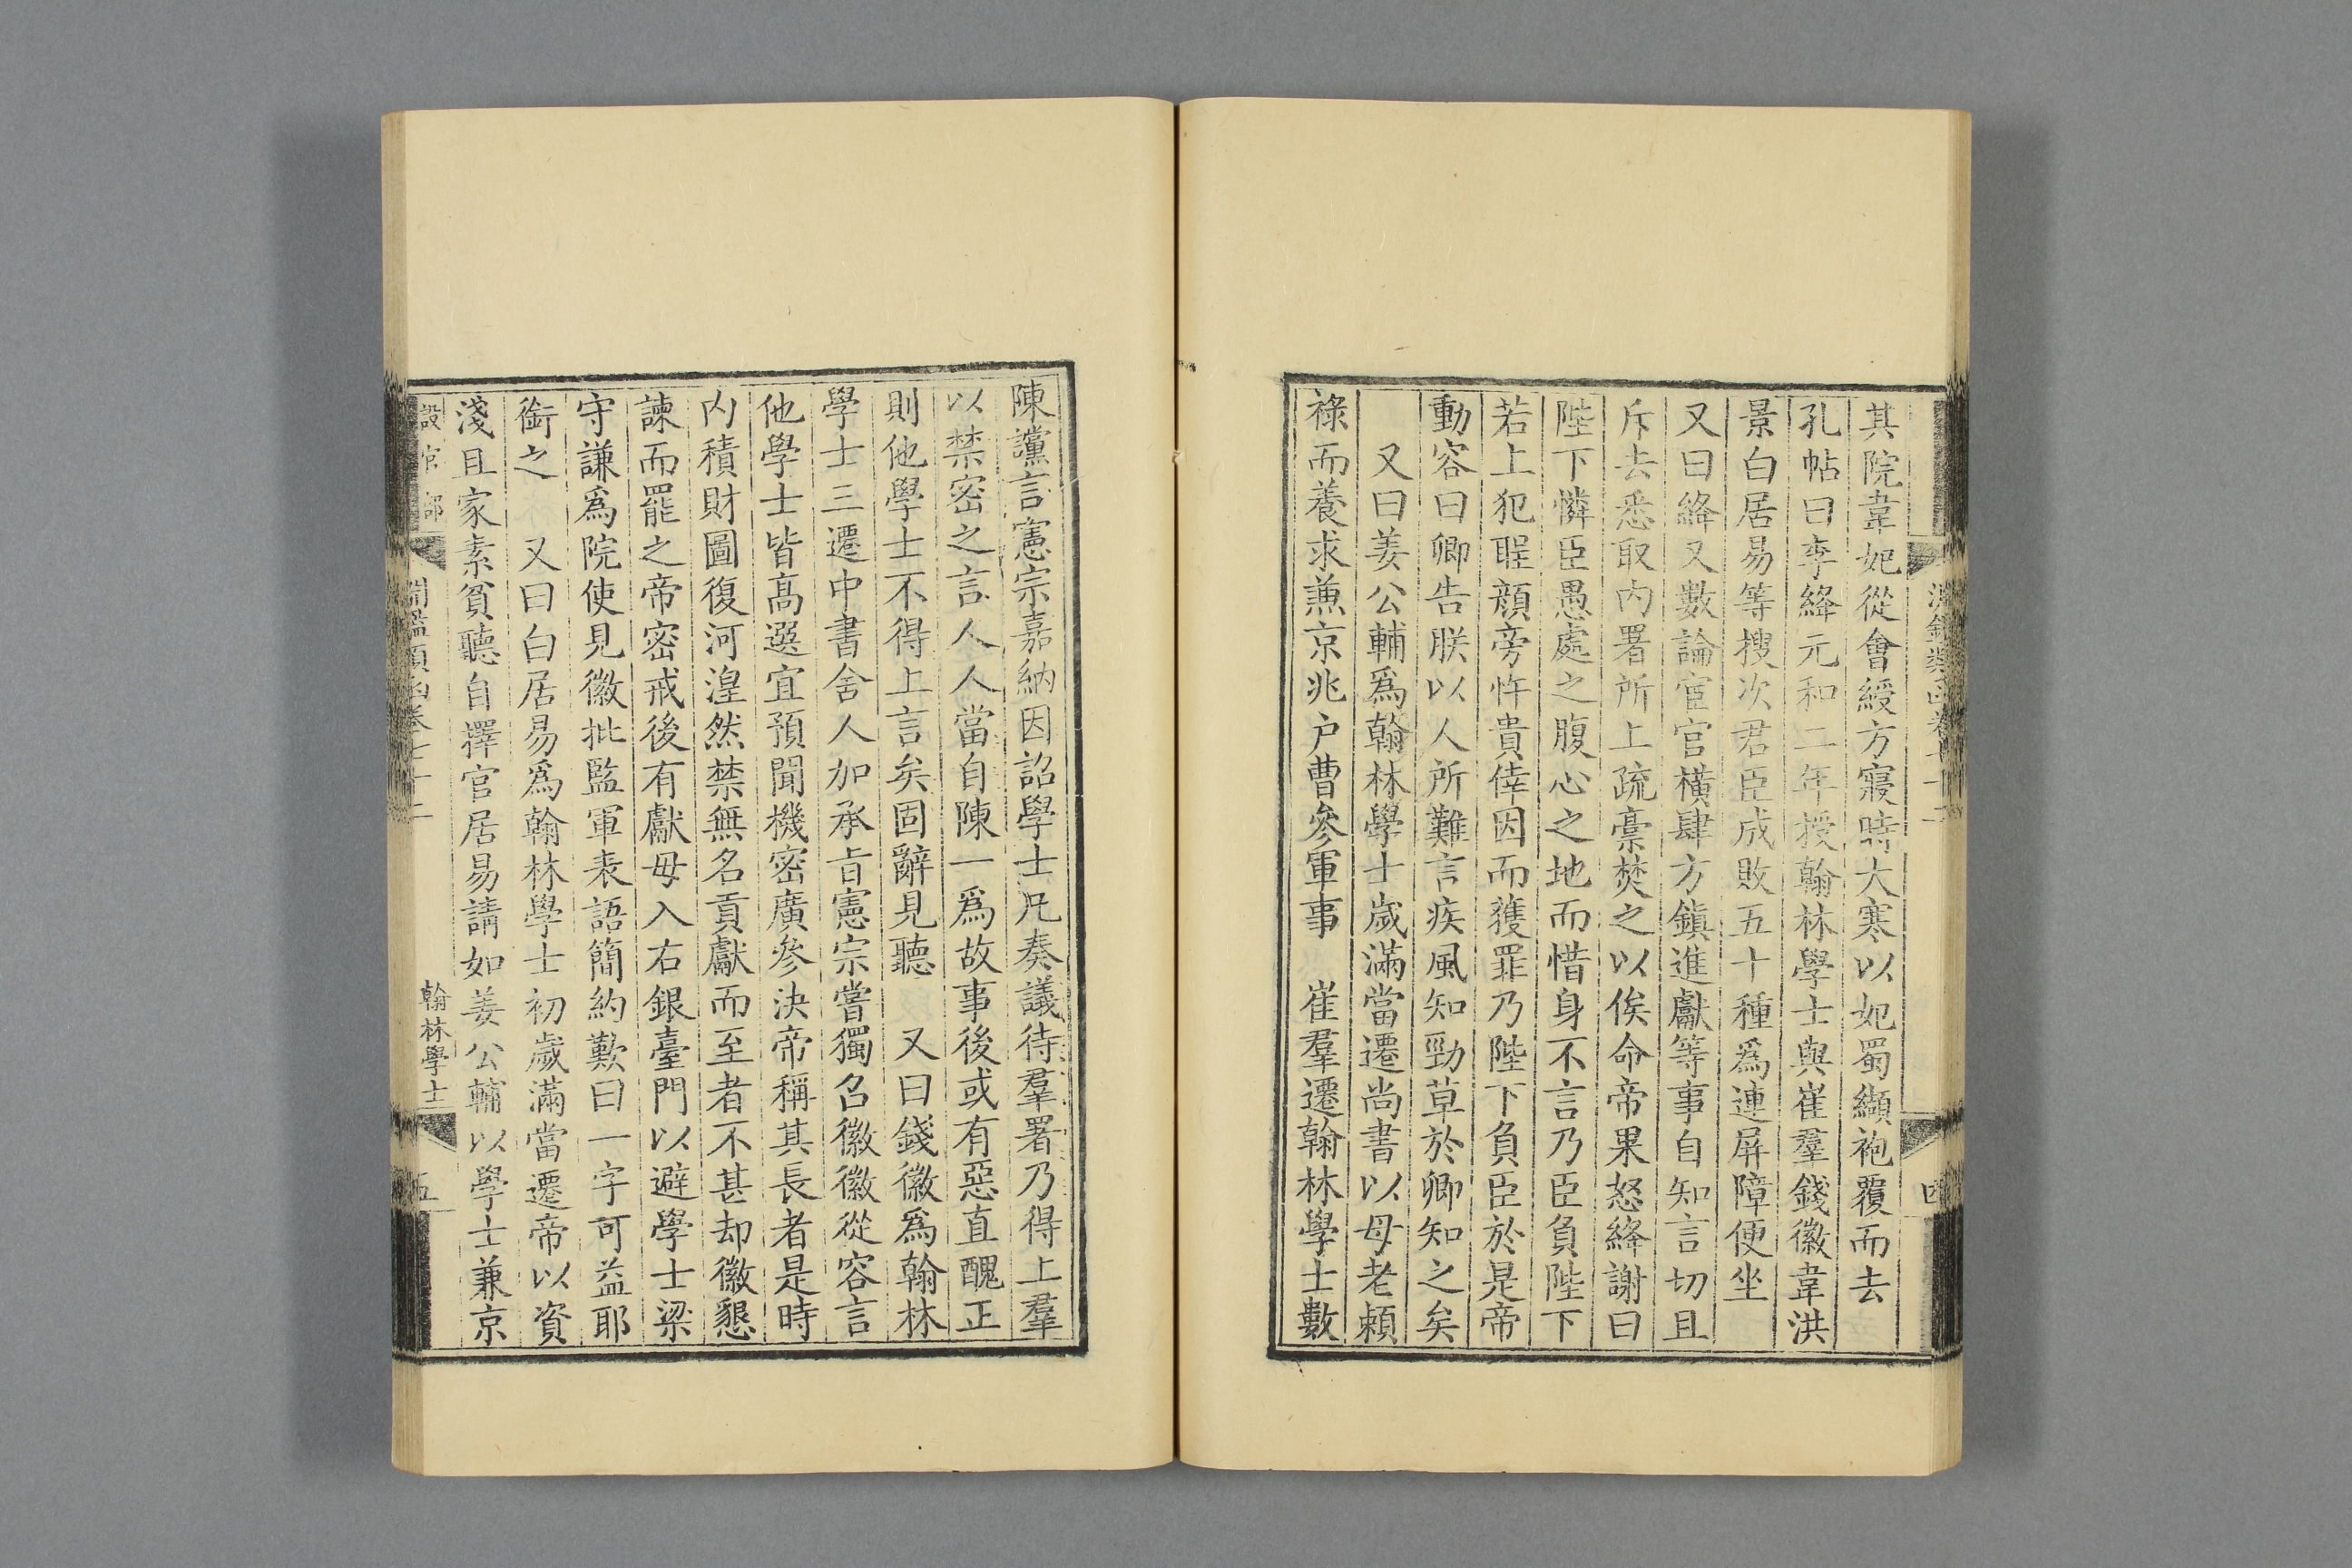 其院韋妃從會綬方寢時大寒以妃蜀纈袍覆而去
孔帖曰李絳元和二年授翰林學士與崔羣錢徽韋洪
景白居易等搜次君臣成敗五十種爲連屏障便坐
又曰絳又數論宦官橫肆方鎮進獻等事自知言切且
斥去悉取內署所上疏藁焚之以俟命帝果怒絳謝曰
陛下憐臣愚處之腹心之地而惜身不言乃臣負陛下
若上犯聖顔旁忤貴倖因而獲罪乃陛下負臣於是帝
動容曰卿告朕以人所難言疾風知勁草於卿知之矣
又曰姜公輔爲翰林學士歲滿當遷尚書以母老賴
祿而養求兼京兆户曹參軍事 崔羣遷翰林學士數
陳讜言憲宗嘉納因詔學士凡奏議待羣署乃得上羣
以禁密之言人人當自陳一爲故事後或有惡直醜正
則他學士不得上言矣固辭見聽 又曰錢徽爲翰林
學士三遷中書舍人加承旨憲宗嘗獨召徽徽從容言
他學士皆高選宜預聞機密廣參決帝稱其長者是時
內積財圖復河湟然禁無名貢獻而至者不甚却徽懇
諫而罷之帝密戒後有獻毋入右銀臺門以避學士梁
守謙爲院使見徽批監軍表語簡約歎曰一字可益耶
銜之 又曰白居易爲翰林學士初歲滿當遷帝以資
淺且家素貧聽自擇官居易請如姜公輔以學士兼京
設官部 淵鑑類函卷七十二 翰林學士 五